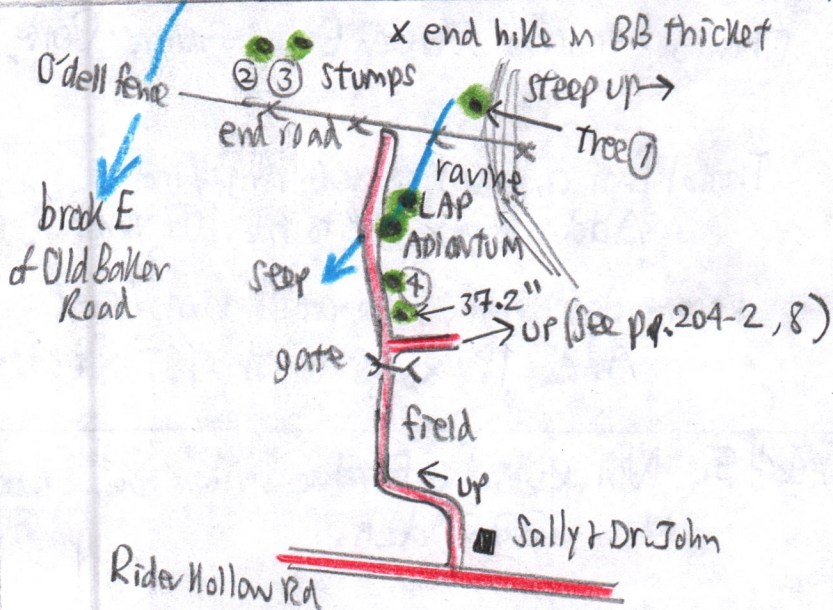 x end hike in BB thicket
O'dell fence
② ③ stumps
steep up→
end road
Tree ①
ravine
LAP
ADIANTUM
brook E
of Old Baker
Road
seep
④
37.2"
up (see pp. 204-2, 8)
gate
field
up
Sally & Dr. John
Rider Hollow Rd